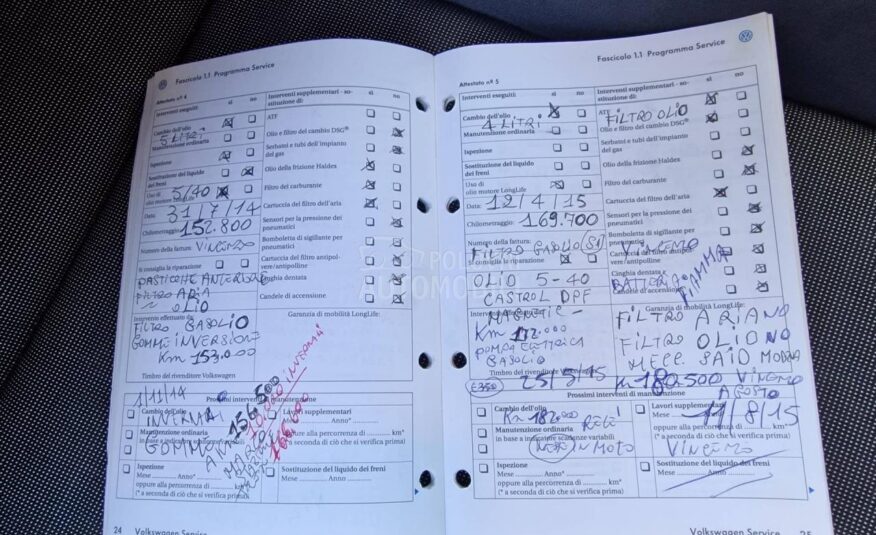 Fascicolo 1.1 Programma Service
Attestato n.º 4
Interventi eseguiti: sì no
Interventi supplementari - sostituzione di: sì no
Cambio dell'olio
5 LITRI
Manutenzione ordinaria
Ispezione
Sostituzione del liquido dei freni
Uso di olio motore LongLife
5/40
Data: 31/7/14
Chilometraggio: 152.800
Numero della fattura: VINCENZO
si consiglia la riparazione
PASTICCHE ANTERIORE
FILTRO ARIA
OLIO
ATF
Olio e filtro del cambio DSG®
Serbatoi e tubi dell'impianto del gas
Olio della frizione Haldex
Filtro del carburante
Cartuccia del filtro dell'aria
Sensori per la pressione dei pneumatici
Bomboletta di sigillante per pneumatici
Cartuccia del filtro antipolvere/antipolline
Cinghia dentata
Candele di accensione
Intervento effettuato da:
Garanzia di mobilità LongLife:
FILTRO GASOLIO
GOMME INVERSIONE
Km 153.000
Timbro del rivenditore Volkswagen
Prossimi interventi di manutenzione
1/11/14
Cambio dell'olio
INVERNALI
GOMME
156.500
Manutenzione ordinaria
in base a indicatore scadenze variabili
Ispezione
Mese Anno*
oppure alla percorrenza di km*
(* a seconda di ciò che si verifica prima)
Lavori supplementari
Mese Anno*
oppure alla percorrenza di km*
(* a seconda di ciò che si verifica prima)
Sostituzione del liquido dei freni
Mese Anno
24 Volkswagen Service
Fascicolo 1.1 Programma Service
Attestato n.º 5
Interventi eseguiti: sì no
Interventi supplementari - sostituzione di: sì no
Cambio dell'olio
4 LITRI
Manutenzione ordinaria
Ispezione
Sostituzione del liquido dei freni
Uso di olio motore LongLife
Data: 12/4/15
Chilometraggio: 169.700
Numero della fattura:
FILTRO GASOLIO (SI)
si consiglia la riparazione
OLIO 5-40
CASTROL DPF
MAGNETIC
ATF
FILTRO OLIO
Olio e filtro del cambio DSG®
Serbatoi e tubi dell'impianto del gas
Olio della frizione Haldex
Filtro del carburante
Cartuccia del filtro dell'aria
Sensori per la pressione dei pneumatici
Bomboletta di sigillante per pneumatici
VINCENZO
Cartuccia del filtro antipolvere/antipolline
BATTERIA
Cinghia dentata
Candele di accensione
Garanzia di mobilità LongLife:
Km 172.000
POMPA ELETTRICA
GASOLIO
FILTRO ARIA NO
FILTRO OLIO NO
MECC. SAID MODENA
Timbro del rivenditore Volkswagen
€350
25/5/15
Km 180.500 VINCENZO
Prossimi interventi di manutenzione
AGOSTO
Cambio dell'olio
Km 182.000
Manutenzione ordinaria
in base a indicatore scadenze variabili
Ispezione
Mese Anno*
oppure alla percorrenza di km*
(* a seconda di ciò che si verifica prima)
Lavori supplementari
11/8/15
oppure alla percorrenza di km*
(* a seconda di ciò che si verifica prima)
VINCENZO
Sostituzione del liquido dei freni
Mese Anno
Volkswagen Service 25